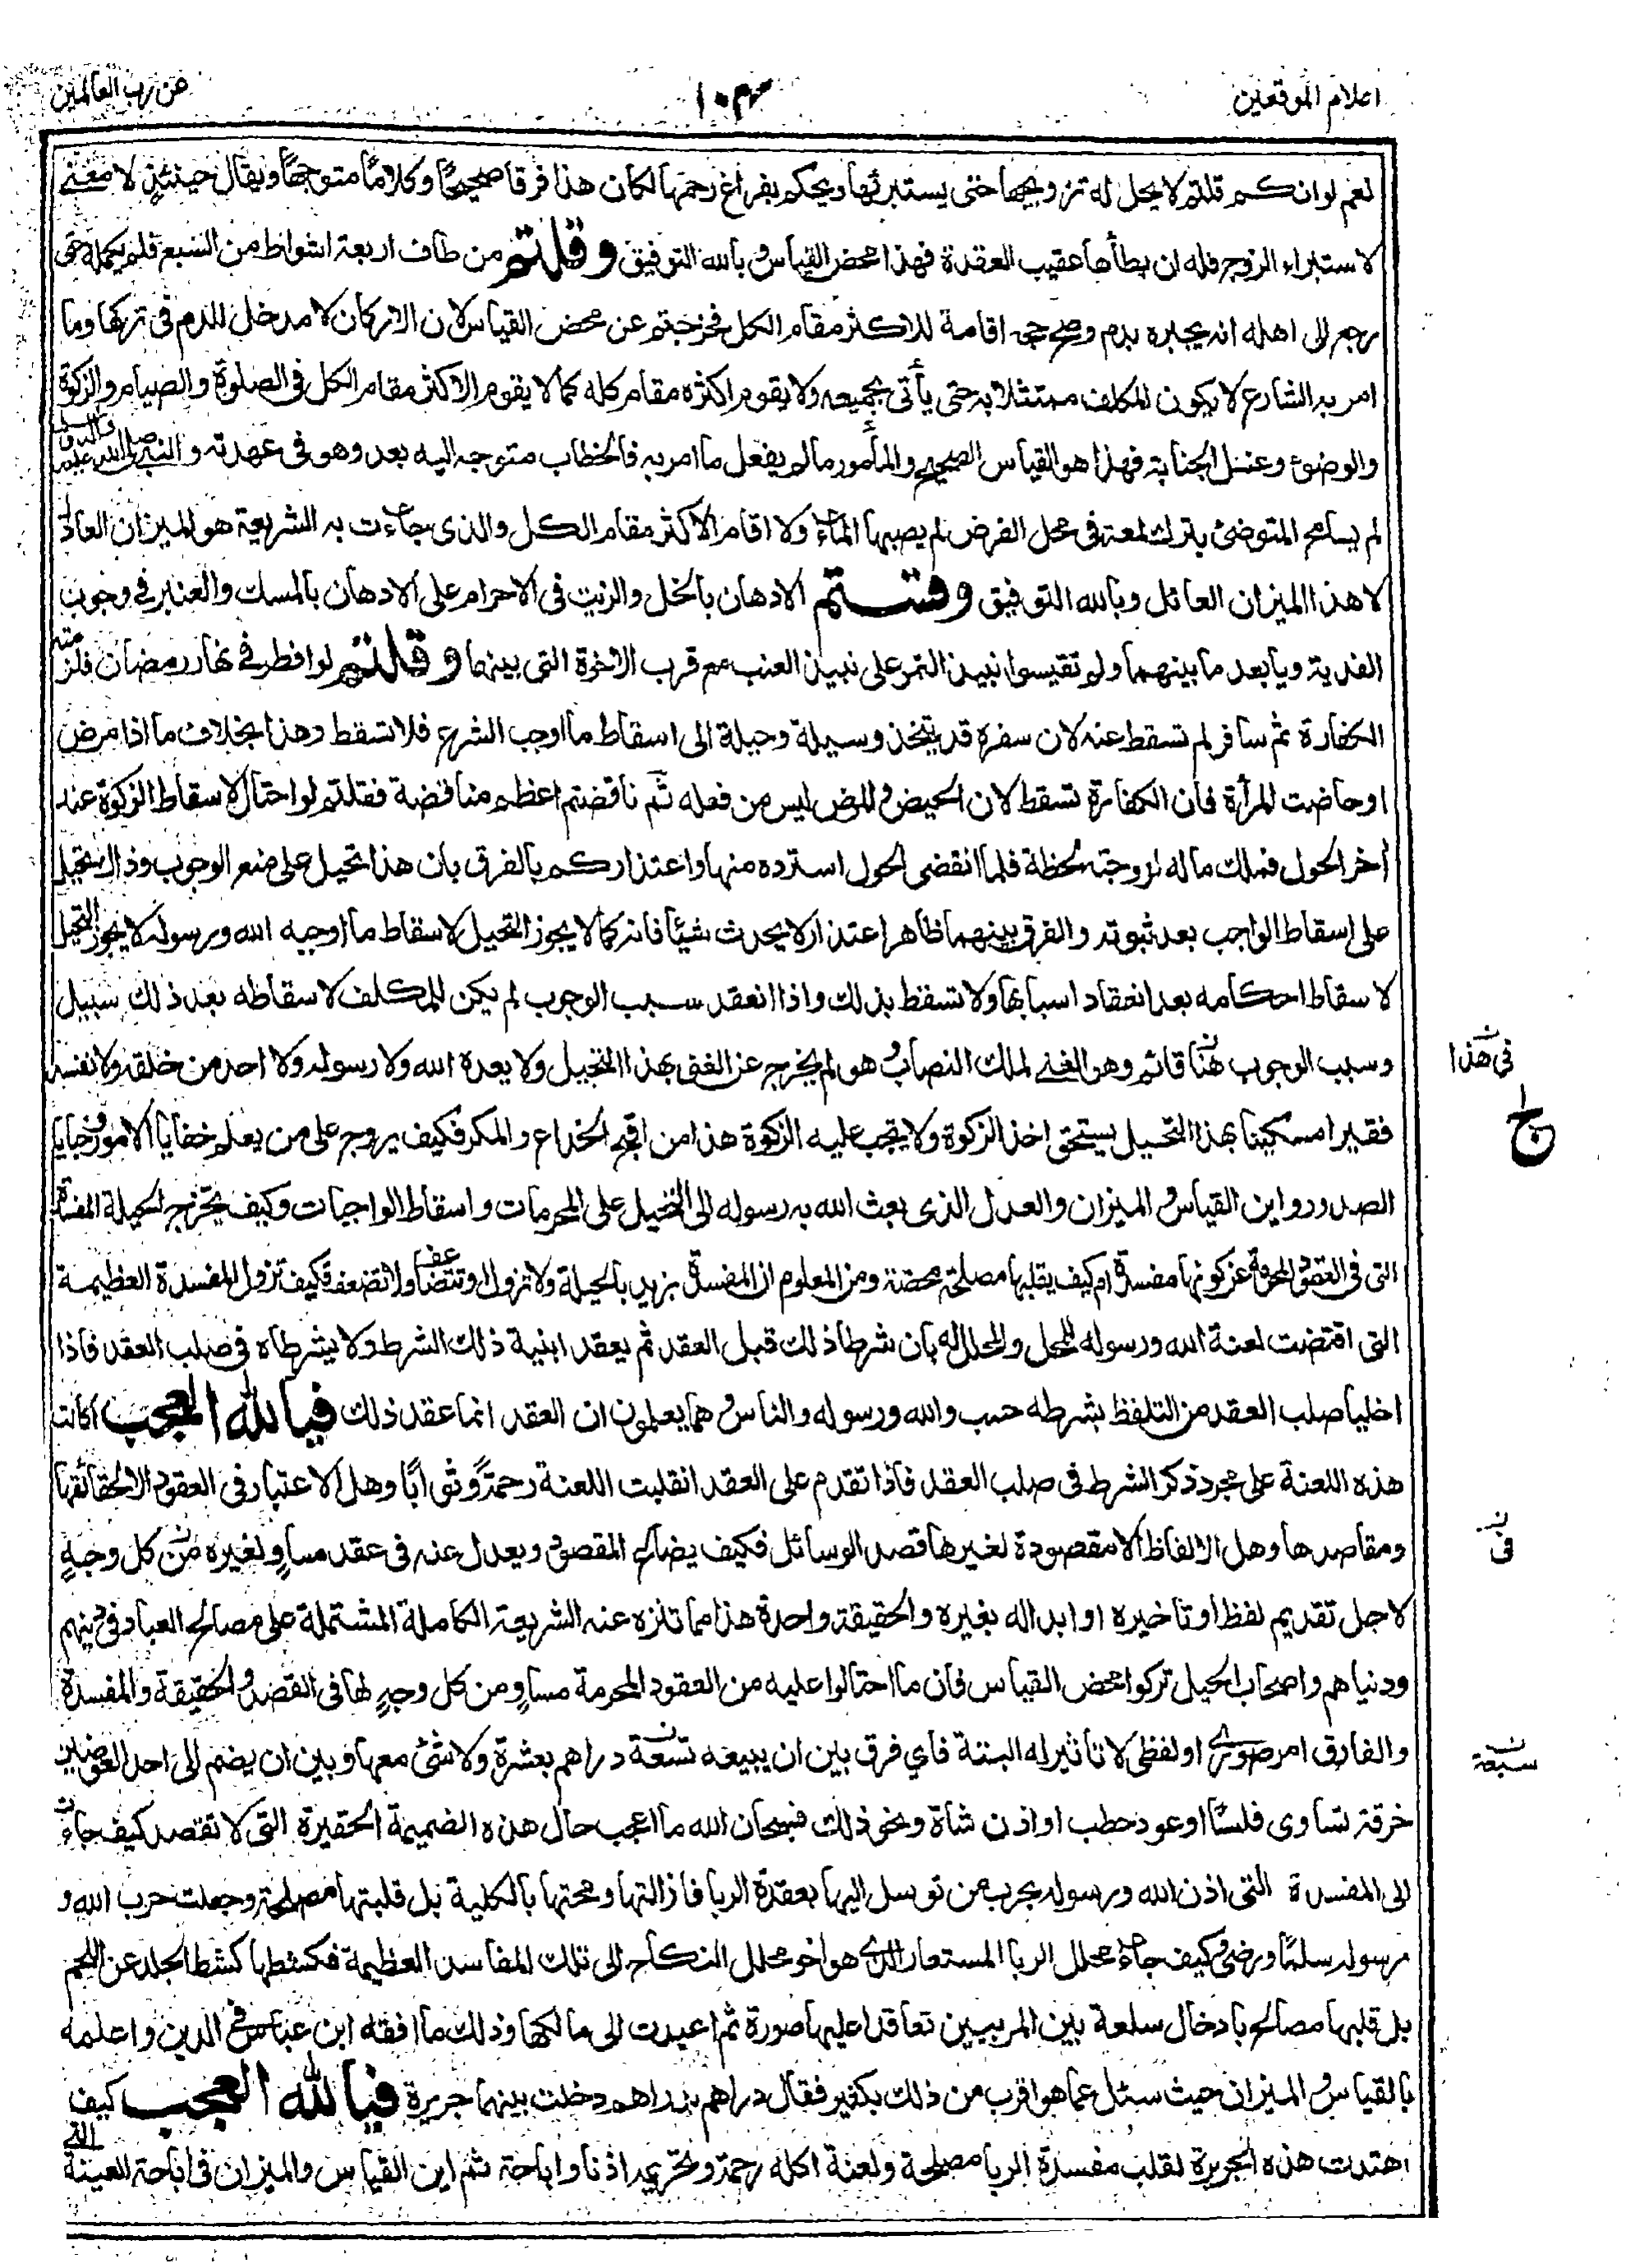 اعلام الموقعين
١٠٣
عن رب العالمين
نعم لو انكم قلتم لا يحل له تزويجها حتى يستبرئها ويحكم بفراغ رحمها لكان هذا فرقا صحيحًا وكلامًا متوجهًا ويقال حينئذٍ لا معنى
لاستبراء الزوج فله ان يطأها عقيب العقدة فهذا محض القياس وبالله التوفيق وقلتم من طاف اربعة اشواط من السبع فلم يكمله حتى
رجع الى اهله انه يجبره بدم وصح حجه اقامة للاكثر مقام الكل فخرجتم عن محض القياس لان الاركان لا مدخل للدم فى تركها وما
امر به الشارع لا يكون المكلف ممتثلا به حتى يأتى بجميعه ولا يقوم اكثره مقام كله كما لا يقوم الاكثر مقام الكل فى الصلوة والصيام والزكوة
والوضوء وغسل الجنابة فهذا هو القياس الصحيح والمأمور ما لم يفعل ما امر به فالخطاب متوجه اليه بعد وهو فى عهدته والنبى صلى الله عليه
لم يسامح المتوضئ بترك لمعة فى محل الفرض لم يصبها الماء ولا اقام الاكثر مقام الكل والذى جاءت به الشريعة هو الميزان العادل
لا هذا الميزان العائل وبالله التوفيق وقستم الادهان بالخل والزيت فى الاحرام على الادهان بالمسك والعنبر فى وجوب
الفدية ويا بعد ما بينهما ولم تقيسوا نبيذ التمر على نبيذ العنب مع قرب الاخوة التى بينهما وقلتم لو افطر فى نهار رمضان فلزمته
الكفارة ثم سافر لم تسقط عنه لان سفره قد يتخذ وسيلة وحيلة الى اسقاط ما اوجب الشرع فلا تسقط وهذا بخلاف ما اذا مرض
او حاضت المرأة فان الكفارة تسقط لان الحيض والمرض ليس من فعله ثم ناقضتم اعظم مناقضة فقلتم لو احتال لاسقاط الزكوة عند
آخر الحول فملك ماله لزوجته لحظة فلما انقضى الحول استرده منها واعتذاركم بالفرق بان هذا تحيل على منع الوجوب وذاك تحيل
على اسقاط الواجب بعد ثبوته والفرق بينهما ظاهر اعتذار لا يجدى شيئًا فانه كما لا يجوز التحيل لاسقاط ما اوجبه الله ورسوله لا يجوز التحيل
لاسقاط احكامه بعد انعقاد اسبابها ولا تسقط بذلك واذا انعقد سبب الوجوب لم يكن للمكلف لاسقاطه بعد ذلك سبيل
وسبب الوجوب هنا قائم وهو الغنى لملك النصاب وهو لم يخرج عن الغنى بهذا التحيل ولا يعده الله ولا رسوله ولا احد من خلقه ولا نفسه
فى هذا
فقيرا مسكينا بهذا التحيل يستحق اخذ الزكوة ولا يجب عليه الزكوة هذا من اقبح الخداع والمكر فكيف يروج على من يعلم خفايا الامور وخبايا
الصدور واين القياس والميزان والعدل الذى بعث الله به رسوله الى التحيل على المحرمات واسقاط الواجبات وكيف تخرج الحيلة المفسدة
التى فى العقود المحرمة عن كونها مفسدة ام كيف يقلبها مصلحة محضة ومن المعلوم ان المفسدة تزيد بالحيلة ولا تزول وتتضاعف ولا تضعف فكيف تزول المفسدة العظيمة
التى اقتضت لعنة الله ورسوله للمحل والمحلل له بان شرطا ذلك قبل العقد ثم يعقد ابنية ذلك الشرط ولا يشرطاه فى صلب العقد فاذا
اخليا صلب العقد من التلفظ بشرطه حسب والله ورسوله والناس وهما يعلمون ان العقد انما عقد ذلك فيا لله العجب اكانت
هذه اللعنة على مجرد ذكر الشرط فى صلب العقد فاذا تقدم على العقد انقلبت اللعنة رحمةً وثوابًا وهل الاعتبار فى العقود الا بحقائقها
ومقاصدها وهل الالفاظ الا مقصودة لغيرها قصد الوسائل فكيف يضاع المقصود ويعدل عنه فى عقد مساوٍ لغيره من كل وجهٍ
فى
لاجل تقديم لفظ او تاخيره او ابداله بغيره والحقيقة واحدة هذا مما تنزه عنه الشريعة الكاملة المشتملة على مصالح العباد فى دينهم
ودنياهم واصحاب الحيل تركوا محض القياس فان ما احتالوا عليه من العقود المحرمة مساوٍ من كل وجهٍ لها فى القصد والحقيقة والمفسدة
والفارق امر صورى او لفظى لا تاثير له البتة فاي فرق بين ان يبيعه تسعة دراهم بعشرة ولا شئ معها وبين ان يضم الى احد العوضين
سبعة
خرقة تساوى فلسًا او عود حطب او اذن شاة ونحو ذلك فسبحان الله ما اعجب حال هذه الضميمة الحقيرة التى لا تقصد كيف جاءت
الى المفسدة التى اذن الله ورسوله بحرب من توسل اليها بعقدة الربا فازالتها ومحتها بالكلية بل قلبتها مصلحة وجعلت حرب الله و
رسوله سلمًا ورضى وكيف جاء محلل الربا المستعار الذى هو اخو محلل النكاح الى تلك المفاسد العظيمة فكشطها كشط الجلد عن اللحم
بل قلبها مصالح بادخال سلعة بين المربيين تعاقدا عليها صورة ثم اعيدت الى مالكها وذلك ما افقه ابن عباس فى الدين واعلمه
بالقياس والميزان حيث سئل عما هو اقرب من ذلك بكثير فقال دراهم بدراهم دخلت بينهما جريرة فيا لله العجب كيف
اهتدت هذه الجريرة لقلب مفسدة الربا مصلحة ولعنة آكله رحمة وتحريمه اذنا واباحة ثم اين القياس والميزان فى اباحة العينة التى